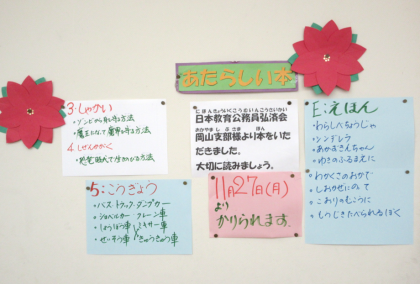 あたらしい本
3:しゃかい
・ゾンビから身を守る方法
・魔王になって魔界を守る方法
4 しぜんかがく
5:こうぎょう
・バス トラック・ダンプカー
・ショベルカー クレーン車
・しょうぼう車 ミキサー車
・せいそう車 きゅうきゅう車
にほんきょういくこうむいんこうさいかい
日本教育公務員弘済会
おかやま しぶさま ほん
岡山支部様より本をいた
だきました。
大切に読みましょう。
11月27日(月)
より
かりられます。
E:えほん
・わらしべちょうじゃ
・シンデレラ
・あかずきんちゃん
・ゆきのふるまえに
・わかくさのおかで
・しあわせにのって
・こおりのむこうに
・もつじきたべられるぼく